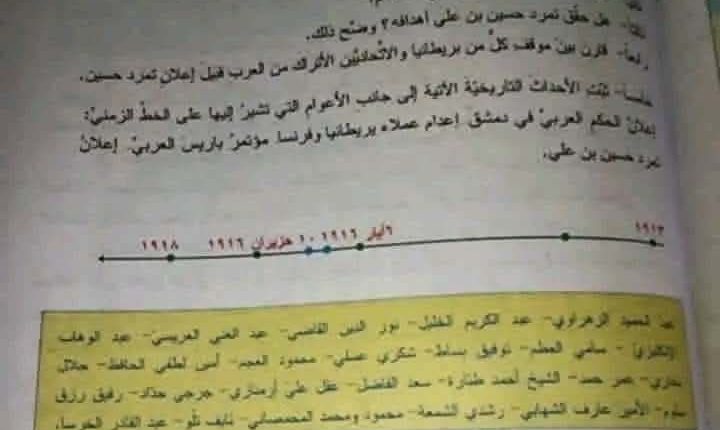 ثالثاً- هل حقّق تمرد حسين بن علي أهدافه؟ وضّح ذلك.
رابعاً- قارن بين موقف كلٌّ من بريطانيا والاتّحاديّين الأتراك من العرب قبيل إعلان تمرد حسين.
خامساً- ثبّت الأحداث التاريخيّة الآتية إلى جانب الأعوام التي تشيرُ إليها على الخطّ الزمنيّ:
إعلانُ الحكم العربيّ في دمشق. إعدام عملاء بريطانيا وفرنسا. مؤتمرُ باريس العربيّ. إعلانُ
تمرد حسين بن علي.
١٩١٣
٦أيار ١٩١٦
١٠ حزيران ١٩١٦
١٩١٨
عبد الحميد الزهراوي- عبد الكريم الخليل- نور الدين القاضي- عبد الغني العريسيّ- عبد الوهاب
الإنكليزيّ - سامي العظم- توفيق بساط- شكري عسلي- محمود العجم- أمين لطفي الحافظ- جلال
بخاري- عمر حمد- الشيخ أحمد طبّارة- سعد الفاضل- عقل علي أرمنازي- جرجي حدّاد- رفيق رزق
سلوم- الأمير عارف الشهابي- رشدي الشمعة- محمود ومحمد المحمصاني- نايف تلّو- عبد القادر الخرسا،